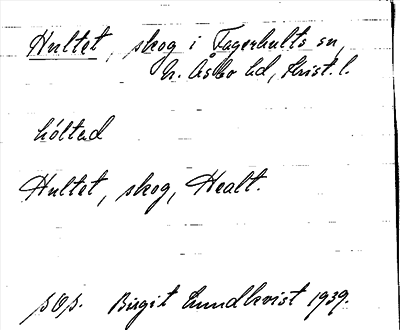 Hultet, skog i Fagerhults sn,
N. Åsbo hd, Krist. l.
hóltad
Hultet, skog, Healt.
pOp. Birgit Lundkvist 1939.